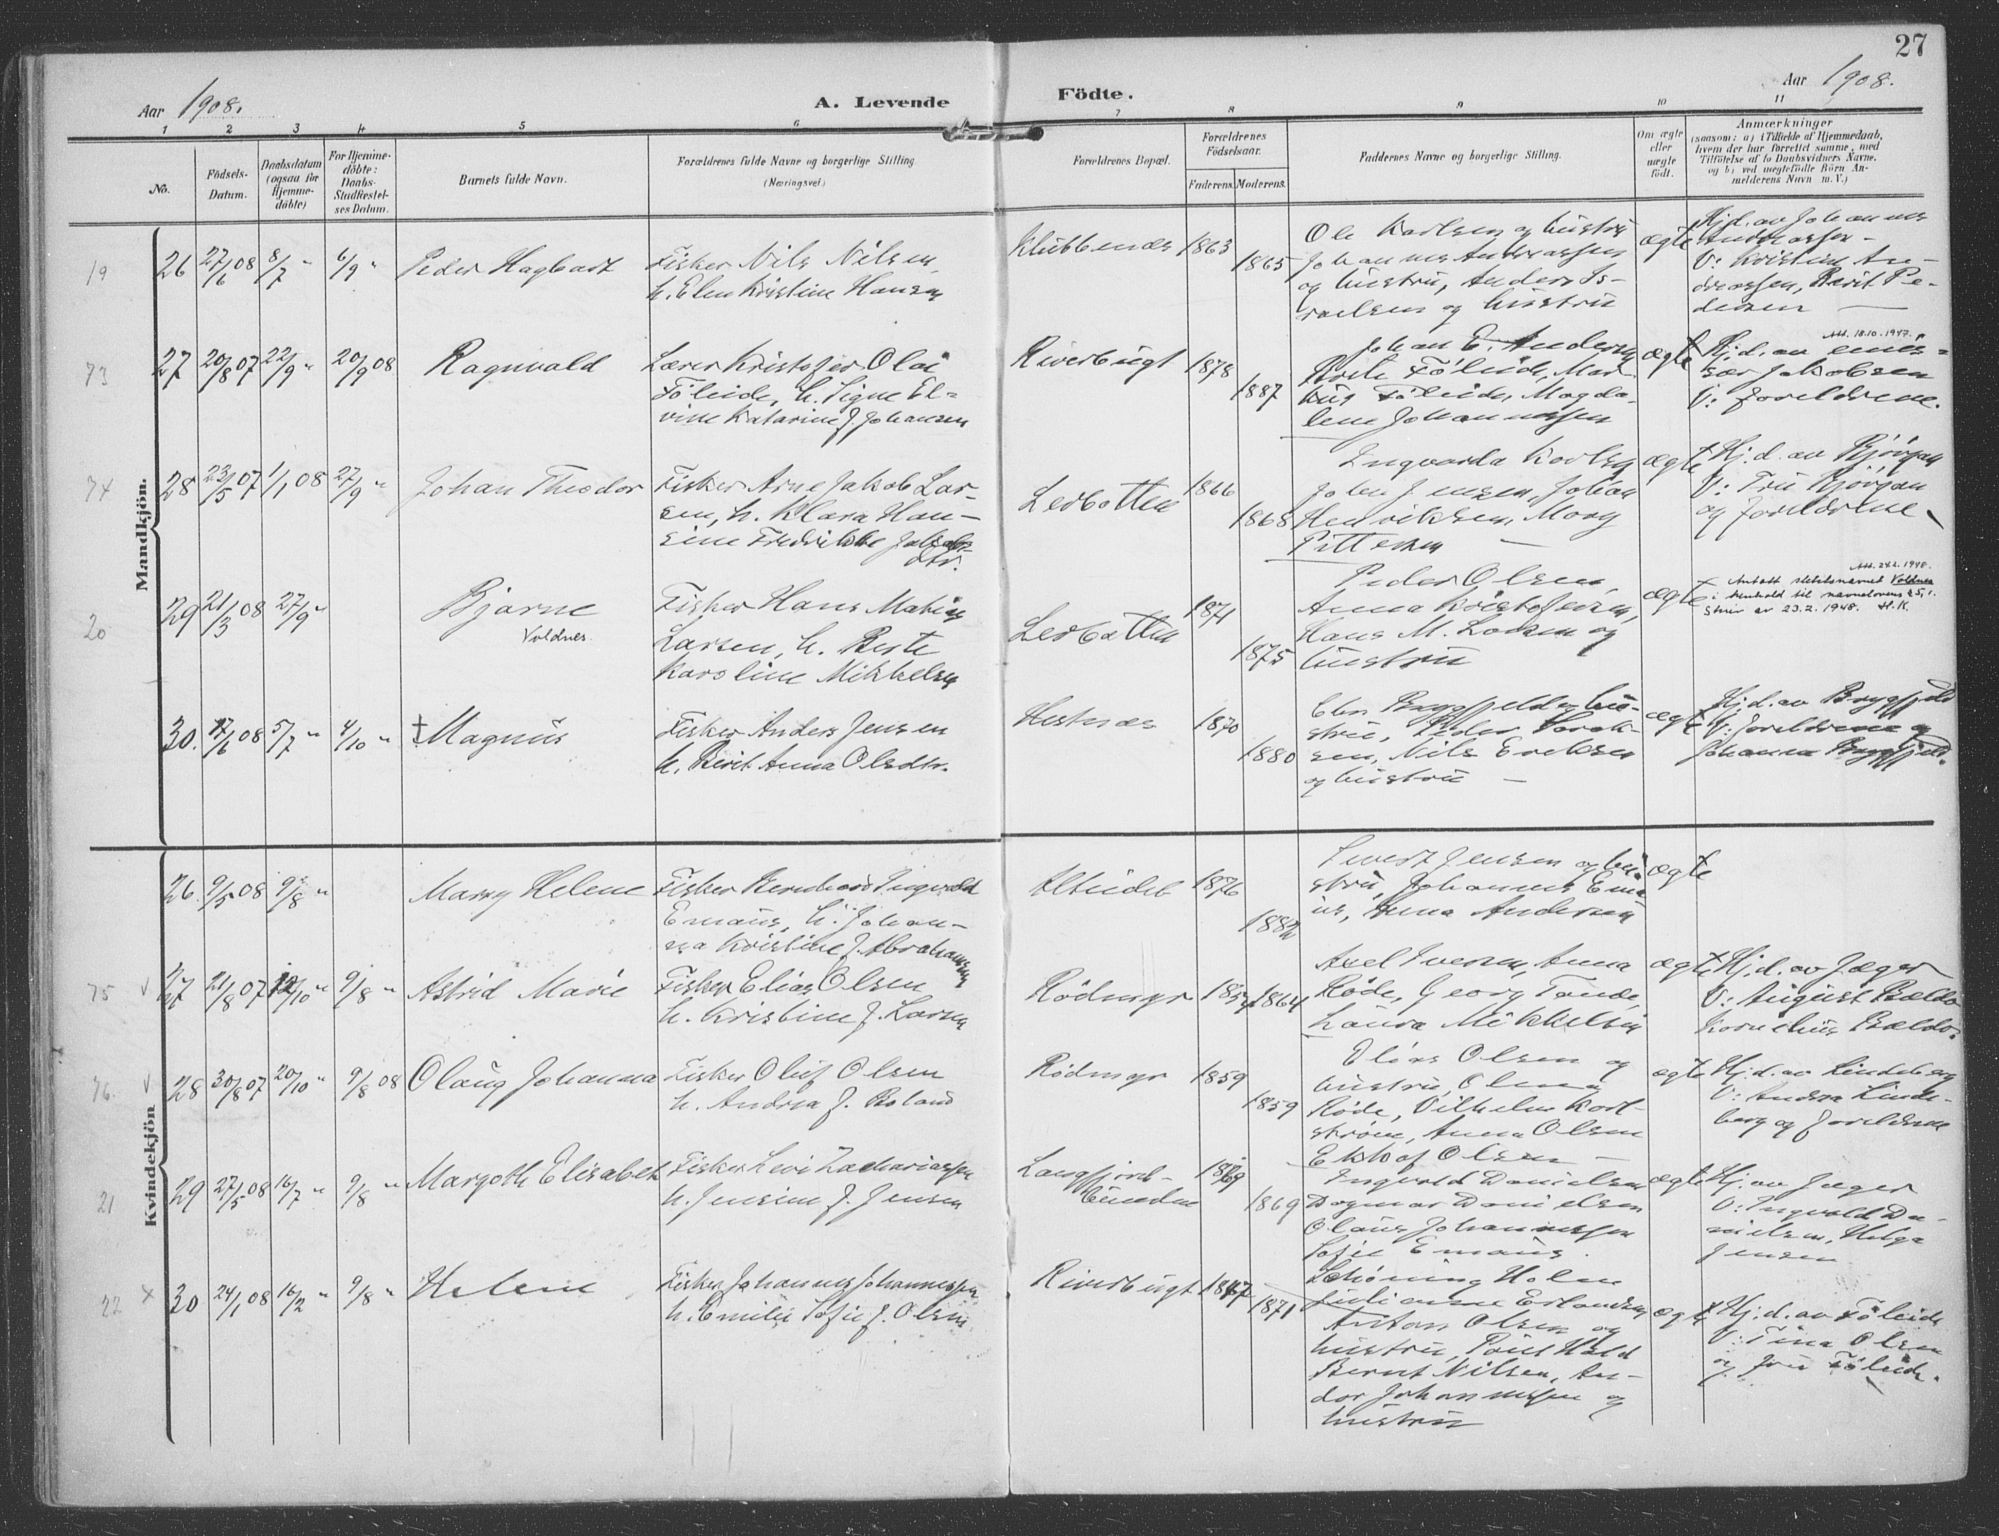 27
Aar 1908.
A. Levende
Födte.
Aar 1908.
1 2 3 4 5 6 7 8 9 10 11
No.
Födsels-
Datum.
Daabsdatum
(ogsaa for
Hjemme-
döbte)
For Hjemme-
döbte:
Daabs-
Stadfæstel-
ses Datum.
Barnets fulde Navn.
Forældrenes fulde Navne og borgerlige Stilling.
(Næringsvei)
Forældrenes Bopæl.
Forældrenes
Födselsaar.
Faderens. Moderens.
Faddernes Navne og borgerlige Stilling.
Om ægte
eller
uægte
födt.
Anmærkninger
(saasom: a) i Tilfælde af Hjemmedaab,
hvem der har forrettet samme, med
Tilföielse af to Daabsvidners Navne,
og b) ved uægtefödte Börn An-
melderens Navn m. V.)
Mandkjön.
19 26 27/6 08 8/7 " 6/9 " Peder Hagbart
Fisker Nils Nilsen,
h. Elen Kristine Hansen
Klubbenæs 1863 1865
Ole Karlsen og hustru
Johannes Andreassen
og hustru, Anders Is-
raelsen og hustru
ægte
Hj.d. av Johannes
Andreassen –
V: Kristine An-
dreassen, Berit Pe-
dersen –
73 27 20/8 07 22/9 " 20/9 08 Ragnvald
Lærer Kristofer Olai
Föleide, h. Signe El-
vine Katarine f. Johansen
Riverbugt 1878 1887
Johan E. Andersen
Föleide, Mar-
kus Föleide, Magda-
lene Johannessen
ægte
Att. 18.10.1947.
Hj.d. av
Jakobsen
V: foreldrene.
74 28 23/5 07 1/1 08 27/9 " Johan Theodor
Fisker Arne Jakob Lar-
sen, h. Klara Han-
sine Fredrikke Jakobs-
dtr.
Lerbotten 1866 1868
Ingvarda Karlsen
John Jensen, Johan
Henriksen, Mary
Pettersen –
ægte
Hj.d. av Bjørgan
V: Fru Bjørgan
og foreldrene
20 29 21/3 08 27/9 " Bjarne
Voldnes.
Fisker Hans Mathias
Larsen, h. Berte
Karoline Mikkelsen
Lerbotten 1871 1875
Peder Olsen,
Anna Kristofersen,
Hans M. Larsen og
hustru
ægte
Att. 24.2.1948.
Antatt slektsnavnet Voldnes
i henhold til navnelovens § 5, 1.
Skriv av 23.2.1948. H.K.
30. 17/6 08 5/7 " 4/10 " † Magnus
Fisker Anders Jensen
h. Berit Anna Olsdtr.
Hestnæs 1870 1880
Ebn Bryggfjeld og hu-
stru, Peder Larak-
sen, Nils Eriksen
og hustru –
ægte
Hj.d. av Bryggfjeld
V: foreldrene og
Johanna Bryggfjeld.
Kvindekjön
26. 9/5 08 9/8 " Marry Helene
Fisker Bernhard Ingvald
Emaus, h. Johan-
na Kristine f. Abrahamsen
Alteidet 1876 1882
Sivert Jensen og hu-
stru, Johannes Ema-
us, Anna Andersen
ægte
75 V 27 21/8 07 12/10 " 9/8 " Astrid Marie
Fisker Elias Olsen
h. Kristine f. Larsen
Rödmyr 1864
Axel Iversen, Anna
Røde, Georg Tande,
Laura Mikkelsen
ægte
Hj.d. av Jæger
V: August Bældo
Kornelius Bældo.
76. V 28 30/8 07 20/10 " 9/8 08 Olaug Johanna
Fisker Oluf Olsen
h. Andrea f. Boland
Rödmyr 1859 1859
Elias Olsen og
hustru, Olena
Røde, Vilhelm Karl-
strøm, Anna Olsen
Ellof Olsen –
ægte
Hj.d. av Lindeberg
V: Andrea Linde-
berg og foreldrene
21 29 27/5 08 16/7 " 9/8 " Margoth Elisabet
Fisker Levi Zachariassen
h. Jensine f. Jensen
Langfjord-
bunden 1869 1869
Ingvald Danielsen
Dagmar Danielsen
Olaus Johannessen
Sofie Emaus.
ægte
Hj. av Jæger
V: Ingvald Da-
nielsen, Helga
Jensen
22 X 30 24/1 08 16/2 " 9/8 " Helene
Fisker Johannes Johannessen,
h. Emilie Sofie f. Olsen
Riverbugt 1871
Schöning Holm
Julianne Erlandsen
Anton Olsen og
hustru, Paul Hald
Bernt Nilsen, An-
dor Johannessen og
hustru
ægte
Hj.d. av Föleide
V: Tina Olsen
og fru Föleide.